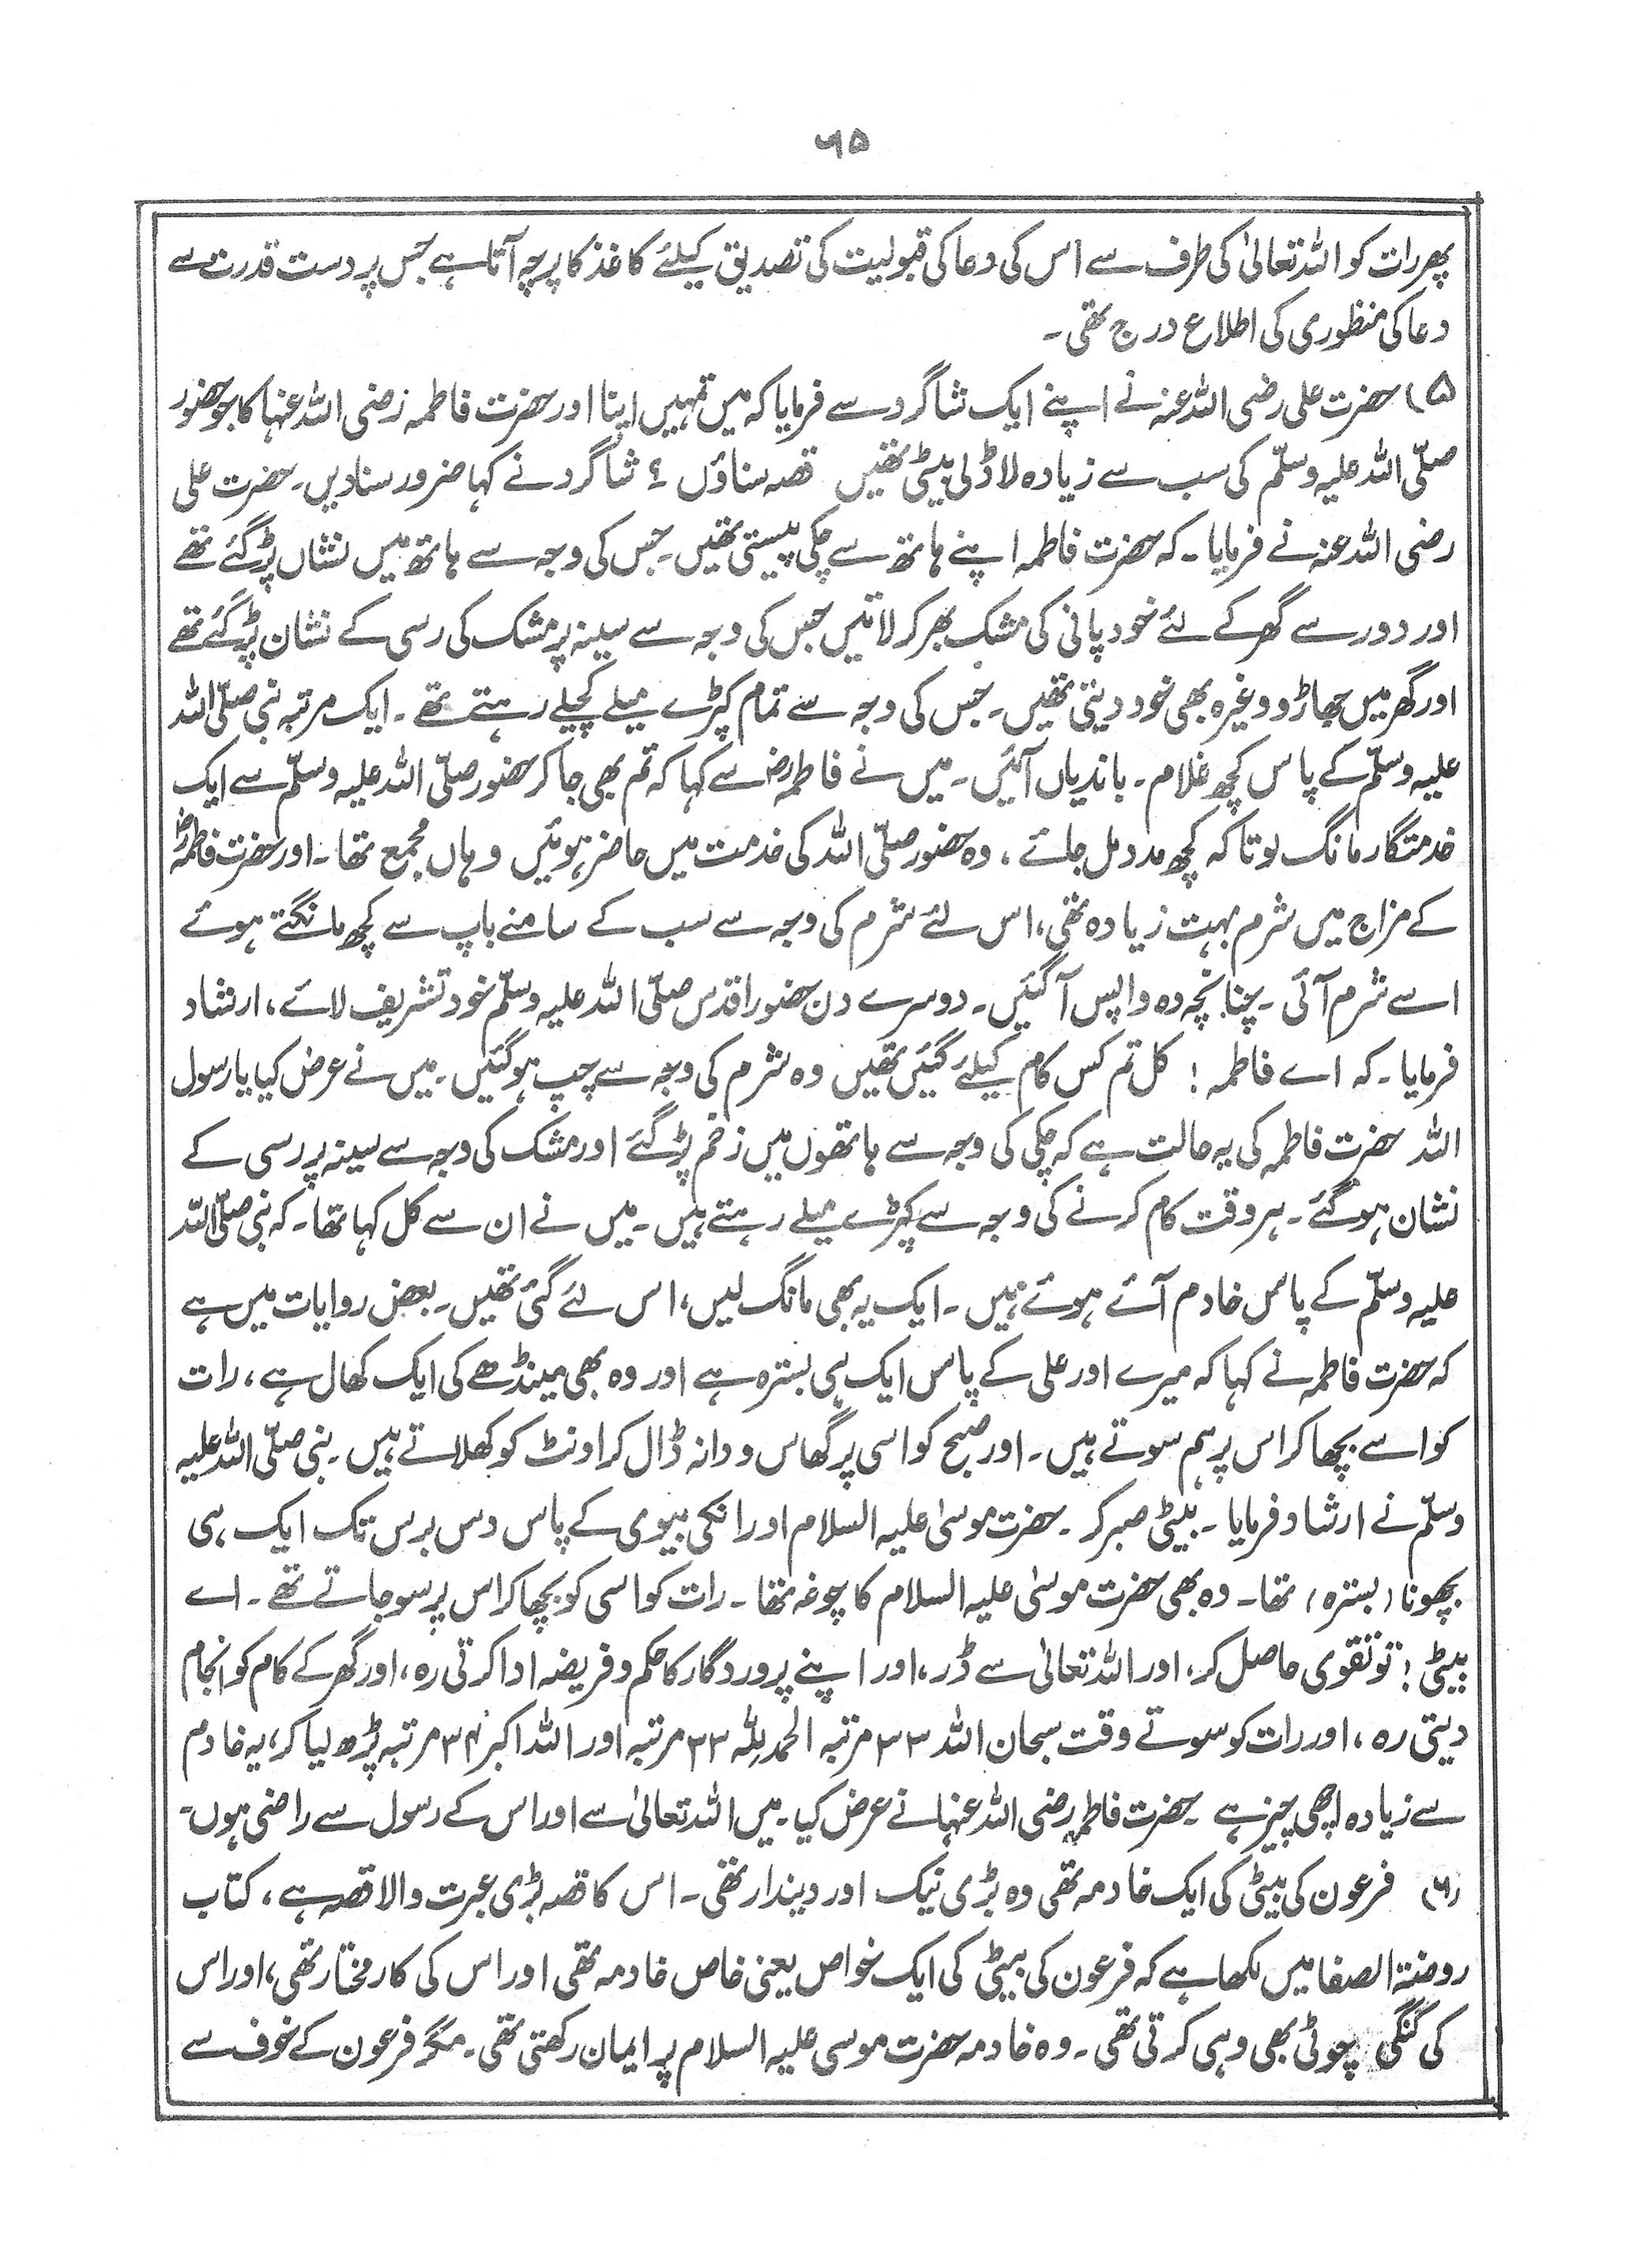 ۶۵
پھر رات کو اللہ تعالیٰ کی طرف سے اس کی دعا کی قبولیت کی تصدیق کیلئے کاغذ کا پرچہ آتا ہے جس پر دست قدرت سے
دعا کی منظوری کی اطلاع درج تھی۔
۵) حضرت علی رضی اللہ عنہ نے اپنے ایک شاگرد سے فرمایا کہ میں تمہیں اپنا اور حضرت فاطمہ رضی اللہ عنہا کا جو حضور
صلّی اللہ علیہ وسلّم کی سب سے زیادہ لاڈلی بیٹی تھیں قصہ سناؤں ؟ شاگرد نے کہا ضرور سنادیں۔ حضرت علی
رضی اللہ عنہ نے فرمایا۔ کہ حضرت فاطمہ اپنے ہاتھ سے چکی پیستی تھیں۔ جس کی وجہ سے ہاتھ میں نشاں پڑ گئے تھے
اور دور سے گھر کے لئے خود پانی کی مشک بھر کر لاتیں جس کی وجہ سے سینہ پر مشک کی رسی کے نشان پڑ گئے تھے
اور گھر میں جھاڑو وغیرہ بھی خود دیتی تھیں۔ جس کی وجہ سے تمام کپڑے میلے کچیلے رہتے تھے۔ ایک مرتبہ نبی صلّی اللہ
علیہ وسلّم کے پاس کچھ غلام۔ باندیاں آئیں۔ میں نے فاطمہؓ سے کہا کہ تم بھی جا کر حضور صلّی اللہ علیہ وسلّم سے ایک
خدمتگار مانگ لو تا کہ کچھ مدد مل جائے، وہ حضور صلّی اللہ کی خدمت میں حاضر ہوئیں وہاں مجمع تھا۔ اور حضرت فاطمہؓ
کے مزاج میں شرم بہت زیادہ تھی، اس لئے شرم کی وجہ سے سب کے سامنے باپ سے کچھ مانگتے ہوئے
اسے شرم آئی۔ چنانچہ وہ واپس آگئیں۔ دوسرے دن حضور اقدس صلّی اللہ علیہ وسلّم خود تشریف لائے، ارشاد
فرمایا۔ کہ اے فاطمہ ! کل تم کس کام کیلئے گئیں تھیں وہ شرم کی وجہ سے چپ ہو گئیں۔ میں نے عرض کیا یا رسول
اللہ حضرت فاطمہ کی یہ حالت ہے کہ چکی کی وجہ سے ہاتھوں میں زخم پڑ گئے اور مشک کی وجہ سے سینہ پر رسی کے
نشان ہو گئے۔ ہر وقت کام کرنے کی وجہ سے کپڑے میلے رہتے ہیں۔ میں نے ان سے کل کہا تھا۔ کہ نبی صلّی اللہ
علیہ وسلّم کے پاس خادم آئے ہوئے ہیں۔ ایک یہ بھی مانگ لیں، اس لئے گئی تھیں۔ بعض روایات میں ہے
کہ حضرت فاطمہ نے کہا کہ میرے اور علی کے پاس ایک ہی بسترہ ہے اور وہ بھی مینڈھے کی ایک کھال ہے، رات
کو اسے بچھا کر اس پر ہم سوتے ہیں۔ اور صبح کو اسی پر گھاس و دانہ ڈال کر اونٹ کو کھلاتے ہیں۔ نبی صلّی اللہ علیہ
وسلّم نے ارشاد فرمایا۔ بیٹی صبر کر۔ حضرت موسیٰ علیہ السلام اور انکی بیوی کے پاس دس برس تک ایک ہی
بچھونا (بسترہ) تھا۔ وہ بھی حضرت موسیٰ علیہ السلام کا چوغہ تھا۔ رات کو اسی کو بچھا کر اس پر سو جاتے تھے۔ اے
بیٹی ! تو تقوی حاصل کر، اور اللہ تعالیٰ سے ڈر، اور اپنے پروردگار کا حکم و فریضہ ادا کرتی رہ، اور گھر کے کام کو انجام
دیتی رہ، اور رات کو سوتے وقت سبحان اللہ ۳۳ مرتبہ الحمد للہ ۳۳ مرتبہ اور اللہ اکبر ۳۴ مرتبہ پڑھ لیا کر، یہ خادم
سے زیادہ اچھی چیز ہے۔ حضرت فاطمہ رضی اللہ عنہا نے عرض کیا۔ میں اللہ تعالیٰ سے اور اس کے رسول سے راضی ہوں۔
(۶) فرعون کی بیٹی کی ایک خادمہ تھی وہ بڑی نیک اور دیندار تھی۔ اس کا قصہ بڑی عبرت والا قصہ ہے، کتاب
روضۃ الصفا میں لکھا ہے کہ فرعون کی بیٹی کی ایک خواص یعنی خاص خادمہ تھی اور اس کی کار مختار تھی، اور اس
کی کنگی چوٹی بھی وہی کرتی تھی۔ وہ خادمہ حضرت موسی علیہ السلام پر ایمان رکھتی تھی۔ مگر فرعون کے خوف سے